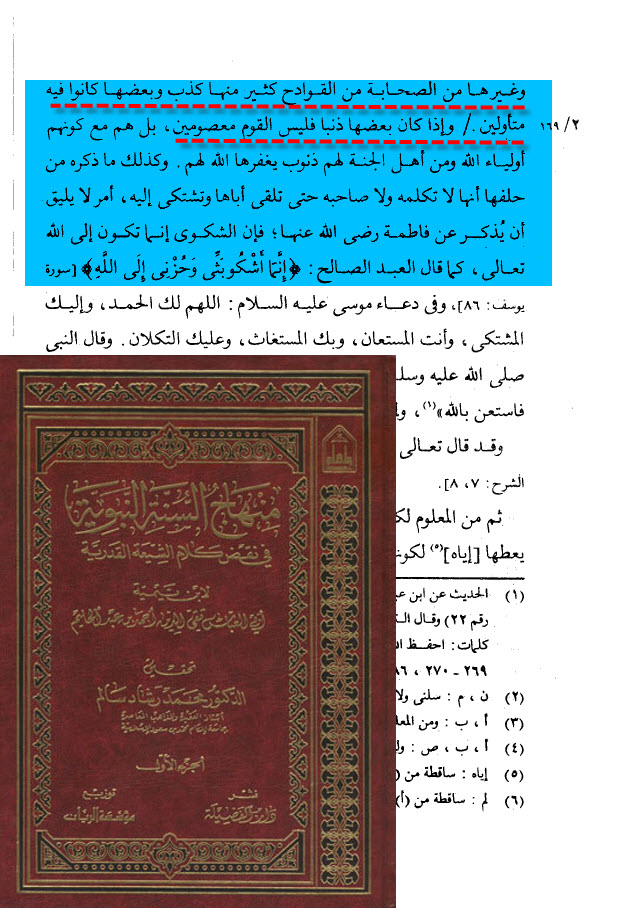 وغيرها من الصحابة من القوادح كثير منها كذب وبعضها كانوا فيه
متأولين . / وإذا كان بعضها ذنبا فليس القوم معصومين ، بل هم مع كونهم
٢/ ١٦٩
أولياء الله ومن أهل الجنة لهم ذنوب يغفرها الله لهم . وكذلك ما ذكره من
حلفها أنها لا تكلمه ولا صاحبه حتى تلقى أباها وتشتكى إليه، أمر لا يليق
أن يُذكر عن فاطمة رضى الله عنها؛ فإن الشكوى إنما تكون إلى الله
تعالى، كما قال العبد الصالح: ﴿إِنَّمَا أَشْكُو بَثِّى وَحُزْنِى إِلَى اللَّهِ﴾ [سورة
يوسف: ٨٦]، وفى دعاء موسى عليه السلام: اللهم لك الحمد، وإليك
المشتكى، وأنت المستعان، وبك المستغاث، وعليك التكلان. وقال النبى
صلى الله عليه وسلم
فاستعن بالله»(١)،
وقد قال تعالى
الشرح: ٧، ٨].
ثم من المعلوم
يعطها [إياه](٥)
(١) الحديث عن ابن
رقم ٢٢) وقال
كلمات: احفظ
٢٦٩ - ٢٧٠ ،
(٢) ن ، م : سلنى
(٣) أ ، ب : ومن
(٤) أ ، ب ، ص :
(٥) إياه : ساقطة من (
(٦) لم : ساقطة من (أ)
منهاج السنة النبوية
في نقض كلام الشيعة القدرية
لابن تيمية
أبي العباس تقي الدين أحمد بن عبد الحليم
تحقيق
الدكتور محمد رشاد سالم
الجزء الأول
نشر
دار الفضيلة
توزيع
مؤسسة الريان